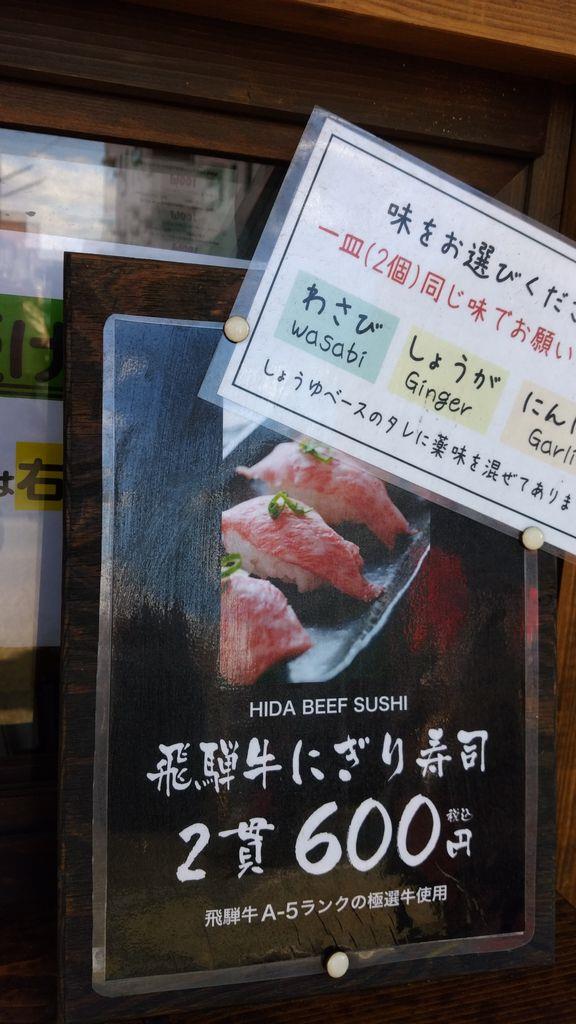 味をお選びくださ
一皿(2個)同じ味でお願い
わさび
wasabi
しょうが
Ginger
にん
Garli
しょうゆベースのタレに薬味を混ぜてありま
は右
HIDA BEEF SUSHI
飛騨牛にぎり寿司
2貫 600円 税込
飛騨牛A-5ランクの極選牛使用